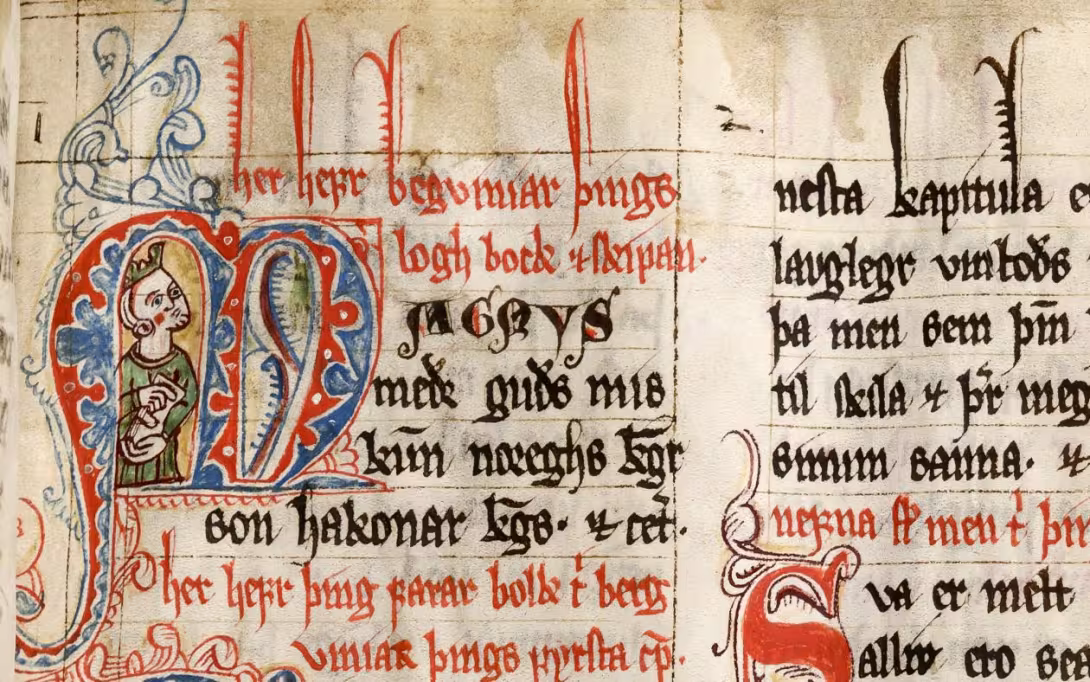 her hefr begviniar þings
logh bock ⁊ skipan.
MAGNVS
mede guðs mis
kun̅ noreghs kgr
son hakonar kgs. ⁊ cet.
her hefr þing farar bolk t̍ berg
viniar þings fyrsta cp̅.
nesta kapitula
lavglegr
þa men sem þm̅
til skila ⁊ þr̍ meg
sinum sanna. ⁊
nefna men t̍ þin
Sva er melt
allir ero